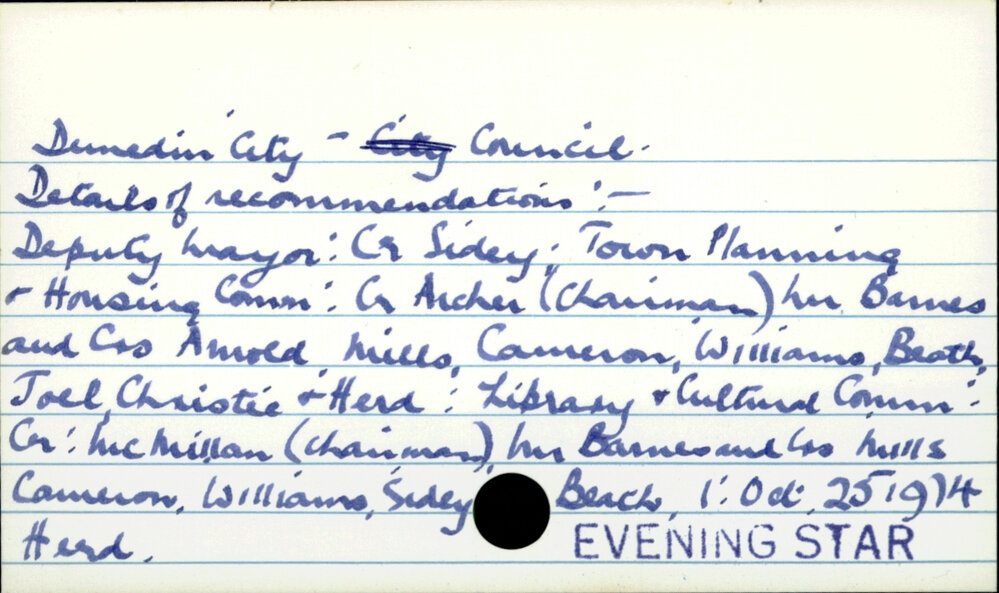 Dunedin City - City Council.
Details of recommendations:-
Deputy Mayor: Cr Sidey; Town Planning
+ Housing Comm: Cr Archer (Chairman) Mr Barnes
and Crs Arnold, Mills, Cameron, Williams, Beath,
Joel, Christie + Herd: Library + Cultural Comm:
Cr: McMillan (chairman), Mr Barnes and Crs Mills
Cameron, Williams, Sidey Beath, 1: Oct. 25 1974
Herd.
EVENING STAR